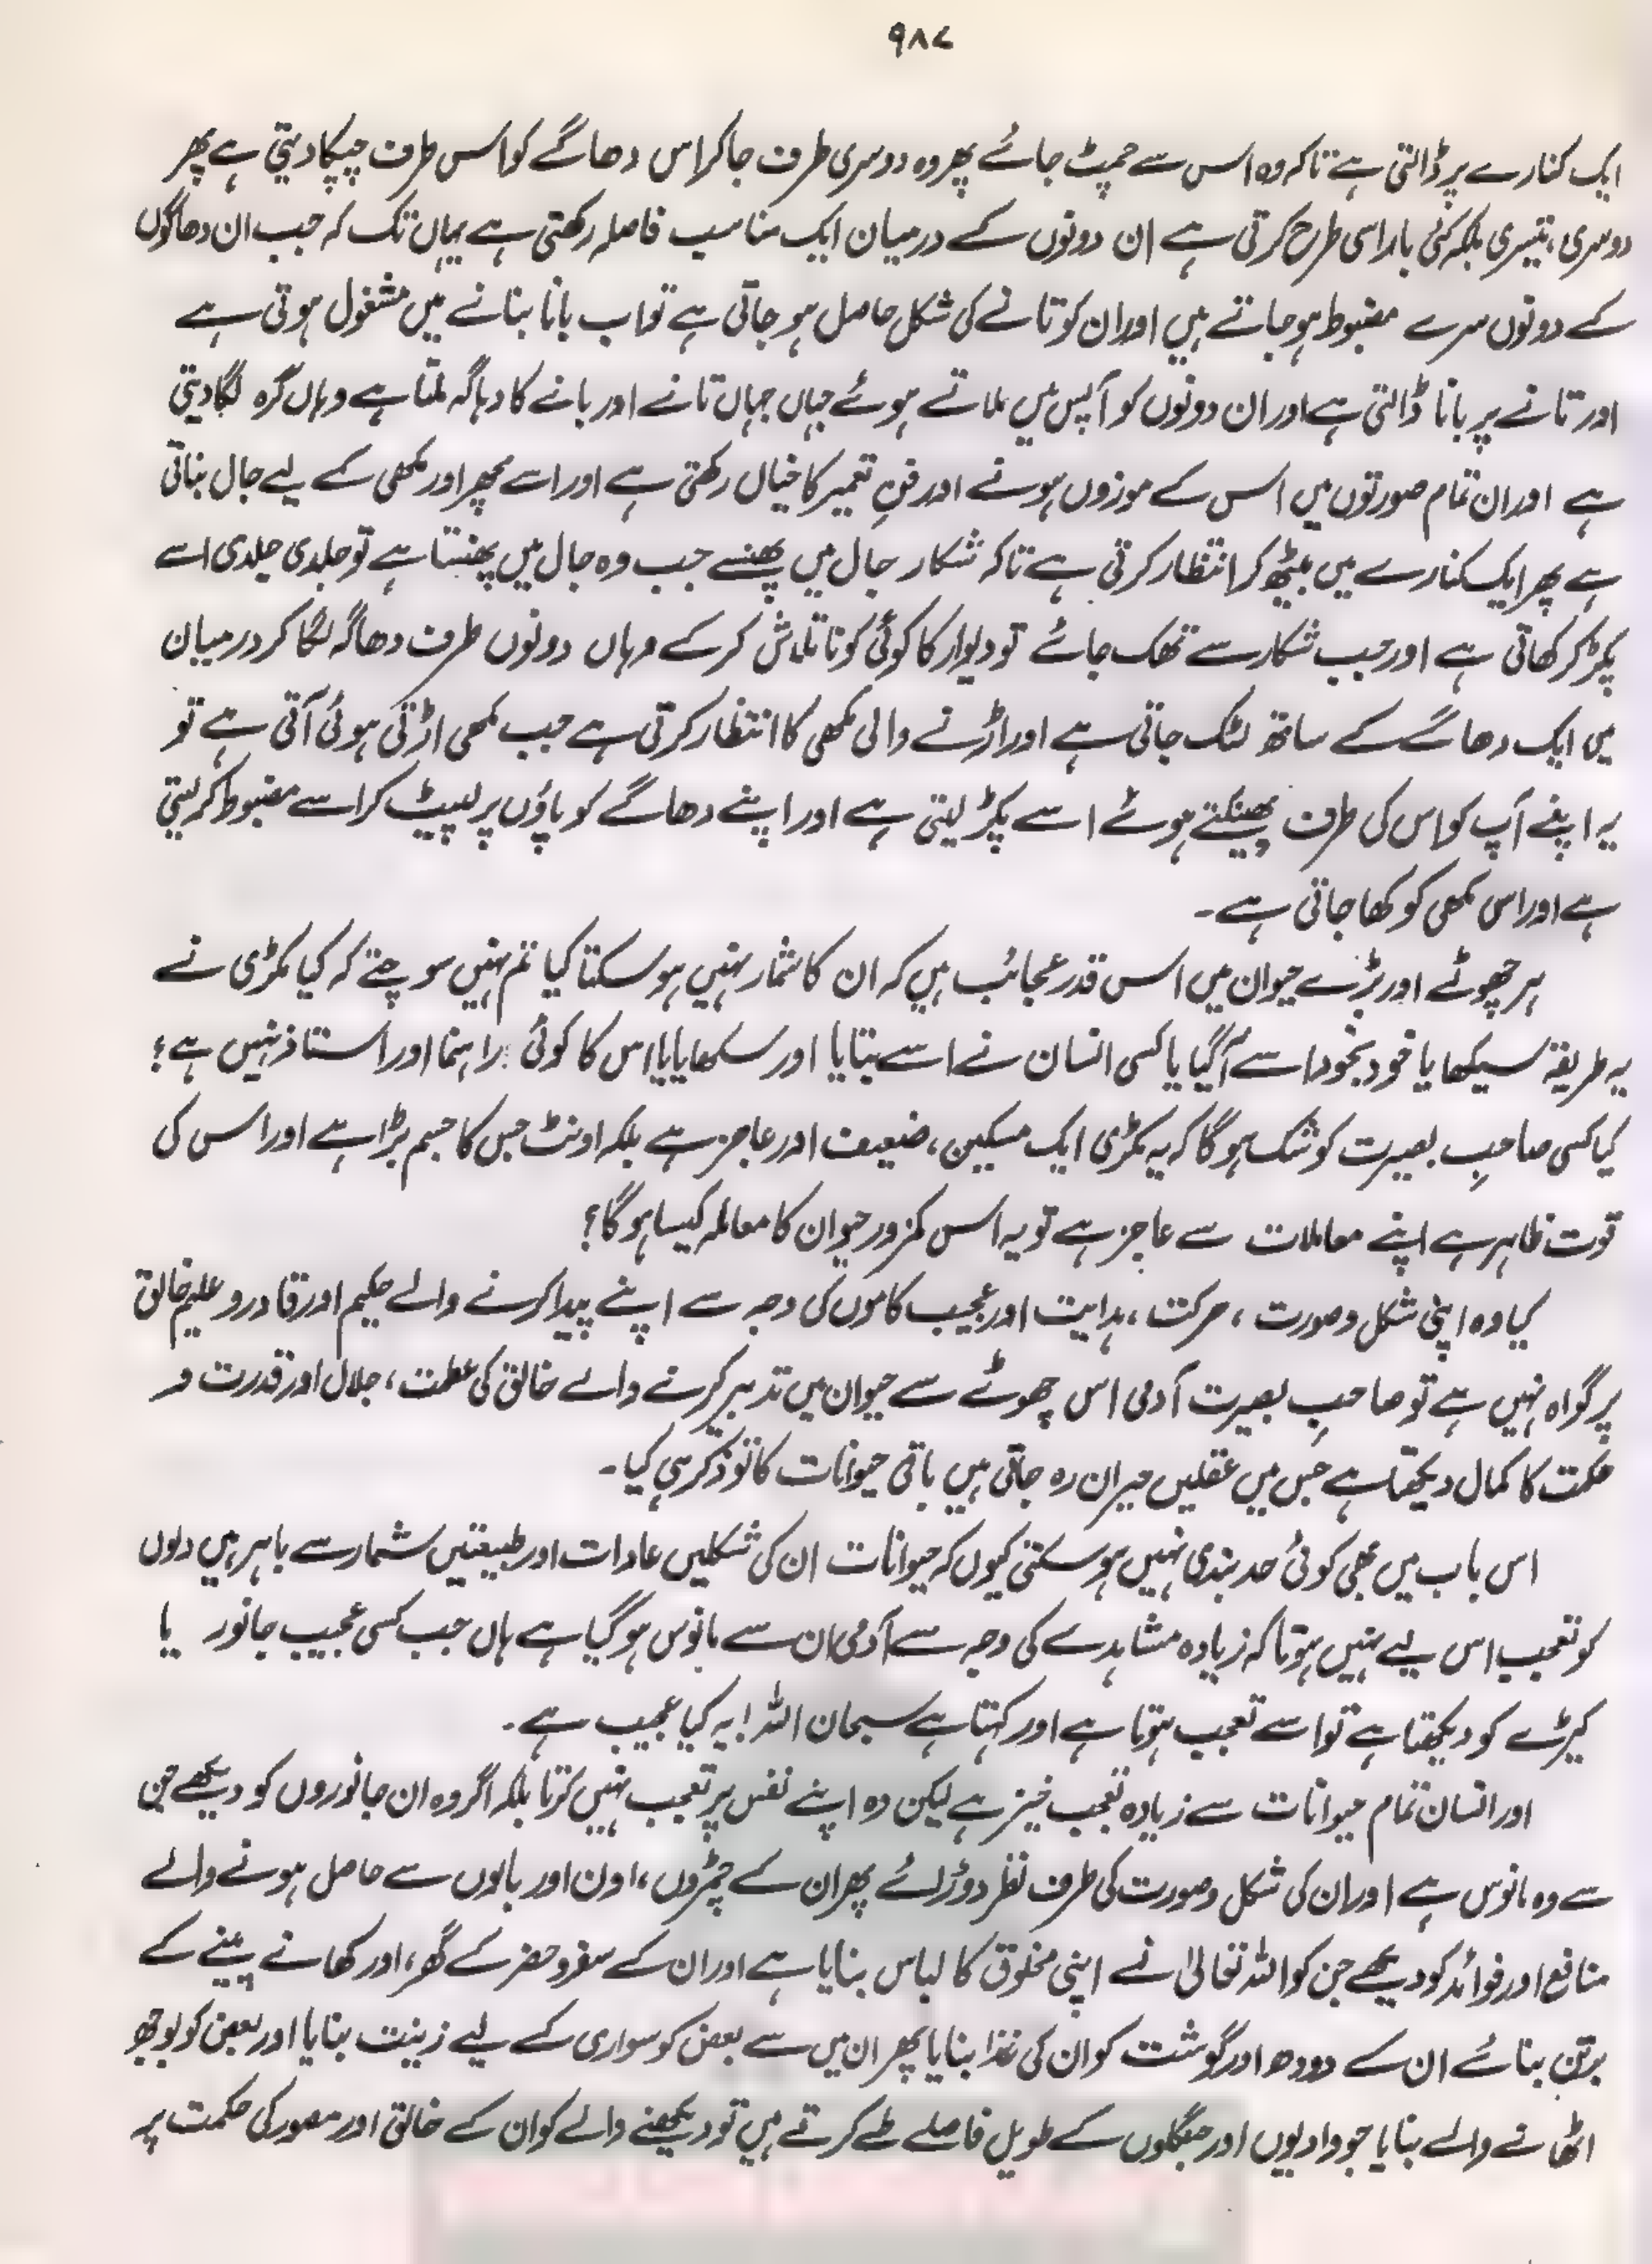 ۹۸۷
ایک کنارے پر ڈالتی ہے تاکہ وہ اس سے چمٹ جائے پھر وہ دوسری طرف جا کر اس دھاگے کو اس طرف چپکا دیتی ہے پھر
دوسری، تیسری بلکہ کئی بار اسی طرح کرتی ہے ان دونوں کے درمیان ایک مناسب فاصلہ رکھتی ہے یہاں تک کہ جب ان دھاگوں
کے دونوں سرے مضبوط ہو جاتے ہیں اور ان کو تانے کی شکل حاصل ہو جاتی ہے تو اب بانا بنانے میں مشغول ہوتی ہے
اور تانے پر بانا ڈالتی ہے اور ان دونوں کو آپس میں ملاتے ہوئے جہاں جہاں تانے اور بانے کا دہاگہ ملتا ہے وہاں گرہ لگا دیتی
ہے اور ان تمام صورتوں میں اس کے موزوں ہونے اور فنِ تعمیر کا خیال رکھتی ہے اور اسے مچھر اور مکھی کے لیے جال بناتی
ہے پھر ایک کنارے میں بیٹھ کر انتظار کرتی ہے تاکہ شکار جال میں پھنسے جب وہ جال میں پھنستا ہے تو جلدی جلدی اسے
پکڑ کر کھاتی ہے اور جب شکار سے تھک جائے تو دیوار کا کوئی کونا تلاش کر کے وہاں دونوں طرف دھاگہ لگا کر درمیان
میں ایک دھاگے کے ساتھ لٹک جاتی ہے اور اڑنے والی مکھی کا انتظار کرتی ہے جب مکھی اڑتی ہوئی آتی ہے تو
یہ اپنے آپ کو اس کی طرف پھینکتے ہوئے اسے پکڑ لیتی ہے اور اپنے دھاگے کو پاؤں پر لپیٹ کر اسے مضبوط کر لیتی
ہے اور اس مکھی کو کھا جاتی ہے۔
ہر چھوٹے اور بڑے حیوان میں اس قدر عجائب ہیں کہ ان کا شمار نہیں ہو سکتا کیا تم نہیں سوچتے کہ کیا مکڑی نے
یہ طریقہ سیکھا یا خود بخود اسے آگیا یا کسی انسان نے اسے بتایا اور سکھایا یا اس کا کوئی راہنما اور استاذ نہیں ہے؟
کیا کسی صاحبِ بصیرت کو شک ہو گا کہ یہ مکڑی ایک مسکین، ضعیف اور عاجز ہے بلکہ اونٹ جس کا جسم بڑا ہے اور اس کی
قوت ظاہر ہے اپنے معاملات سے عاجز ہے تو یہ اس کمزور حیوان کا معاملہ کیسا ہو گا؟
کیا وہ اپنی شکل و صورت، حرکت، ہدایت اور عجیب کاموں کی وجہ سے اپنے پیدا کرنے والے حکیم اور قادر و علیم خالق
پر گواہ نہیں ہے تو صاحبِ بصیرت آدمی اس چھوٹے سے حیوان میں تدبیر کرنے والے خالق کی عظمت، جلال اور قدرت و
حکمت کا کمال دیکھتا ہے جس میں عقلیں حیران رہ جاتی ہیں باقی حیوانات کا تو ذکر ہی کیا۔
اس باب میں بھی کوئی حد بندی نہیں ہو سکتی کیوں کہ حیوانات ان کی شکلیں عادات اور طبیعتیں شمار سے باہر ہیں دلوں
کو تعجب اس لیے نہیں ہوتا کہ زیادہ مشاہدے کی وجہ سے آدمی ان سے مانوس ہو گیا ہے ہاں جب کسی عجیب جانور یا
کیڑے کو دیکھتا ہے تو اسے تعجب ہوتا ہے اور کہتا ہے سبحان اللہ! یہ کیا عجیب ہے۔
اور انسان تمام حیوانات سے زیادہ تعجب خیز ہے لیکن وہ اپنے نفس پر تعجب نہیں کرتا بلکہ اگر وہ ان جانوروں کو دیکھے جن
سے وہ مانوس ہے اور ان کی شکل و صورت کی طرف نظر دوڑائے پھر ان کے چمڑوں، اون اور بالوں سے حاصل ہونے والے
منافع اور فوائد کو دیکھے جن کو اللہ تعالیٰ نے اپنی مخلوق کا لباس بنایا ہے اور ان کے سفر و حضر کے گھر، اور کھانے پینے کے
برتن بنائے ان کے دودھ اور گوشت کو ان کی غذا بنایا پھر ان میں سے بعض کو سواری کے لیے زینت بنایا اور بعض کو بوجھ
اٹھانے والے بنایا جو وادیوں اور جنگلوں کے طویل فاصلے طے کرتے ہیں تو دیکھنے والے کو ان کے خالق اور مصور کی حکمت پر